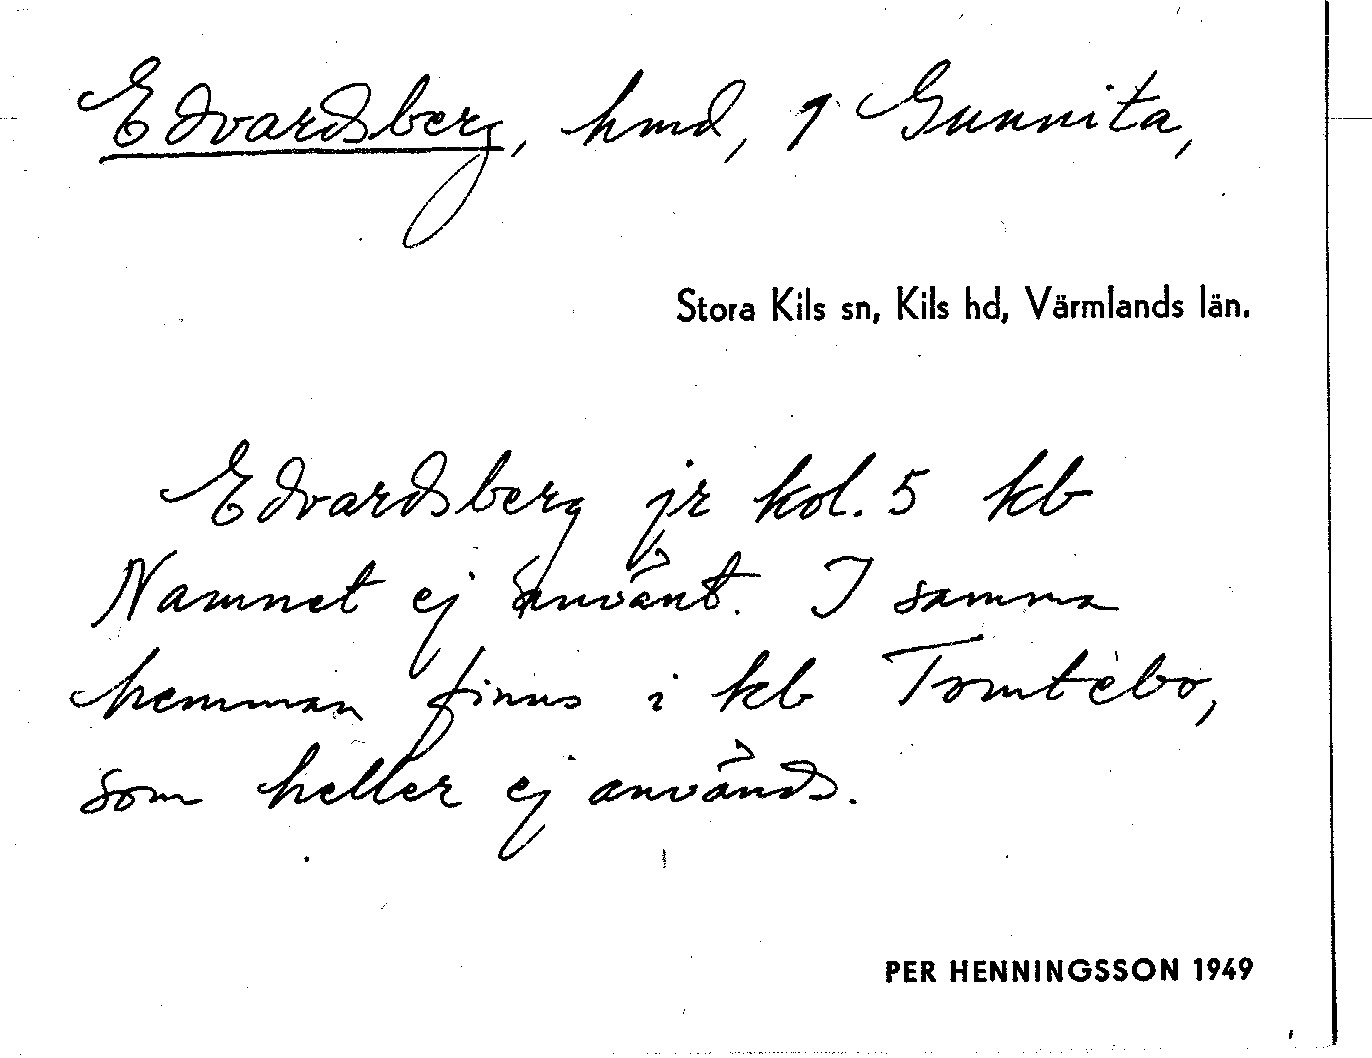 Edvardsberg, hmd, 9 Gunnita,
Stora Kils sn, Kils hd, Värmlands län.
Edvardsberg jr kol. 5 kb
Namnet ej använt. I samma
hemman finns i kb Tomtebo,
som heller ej används.
PER HENNINGSSON 1949